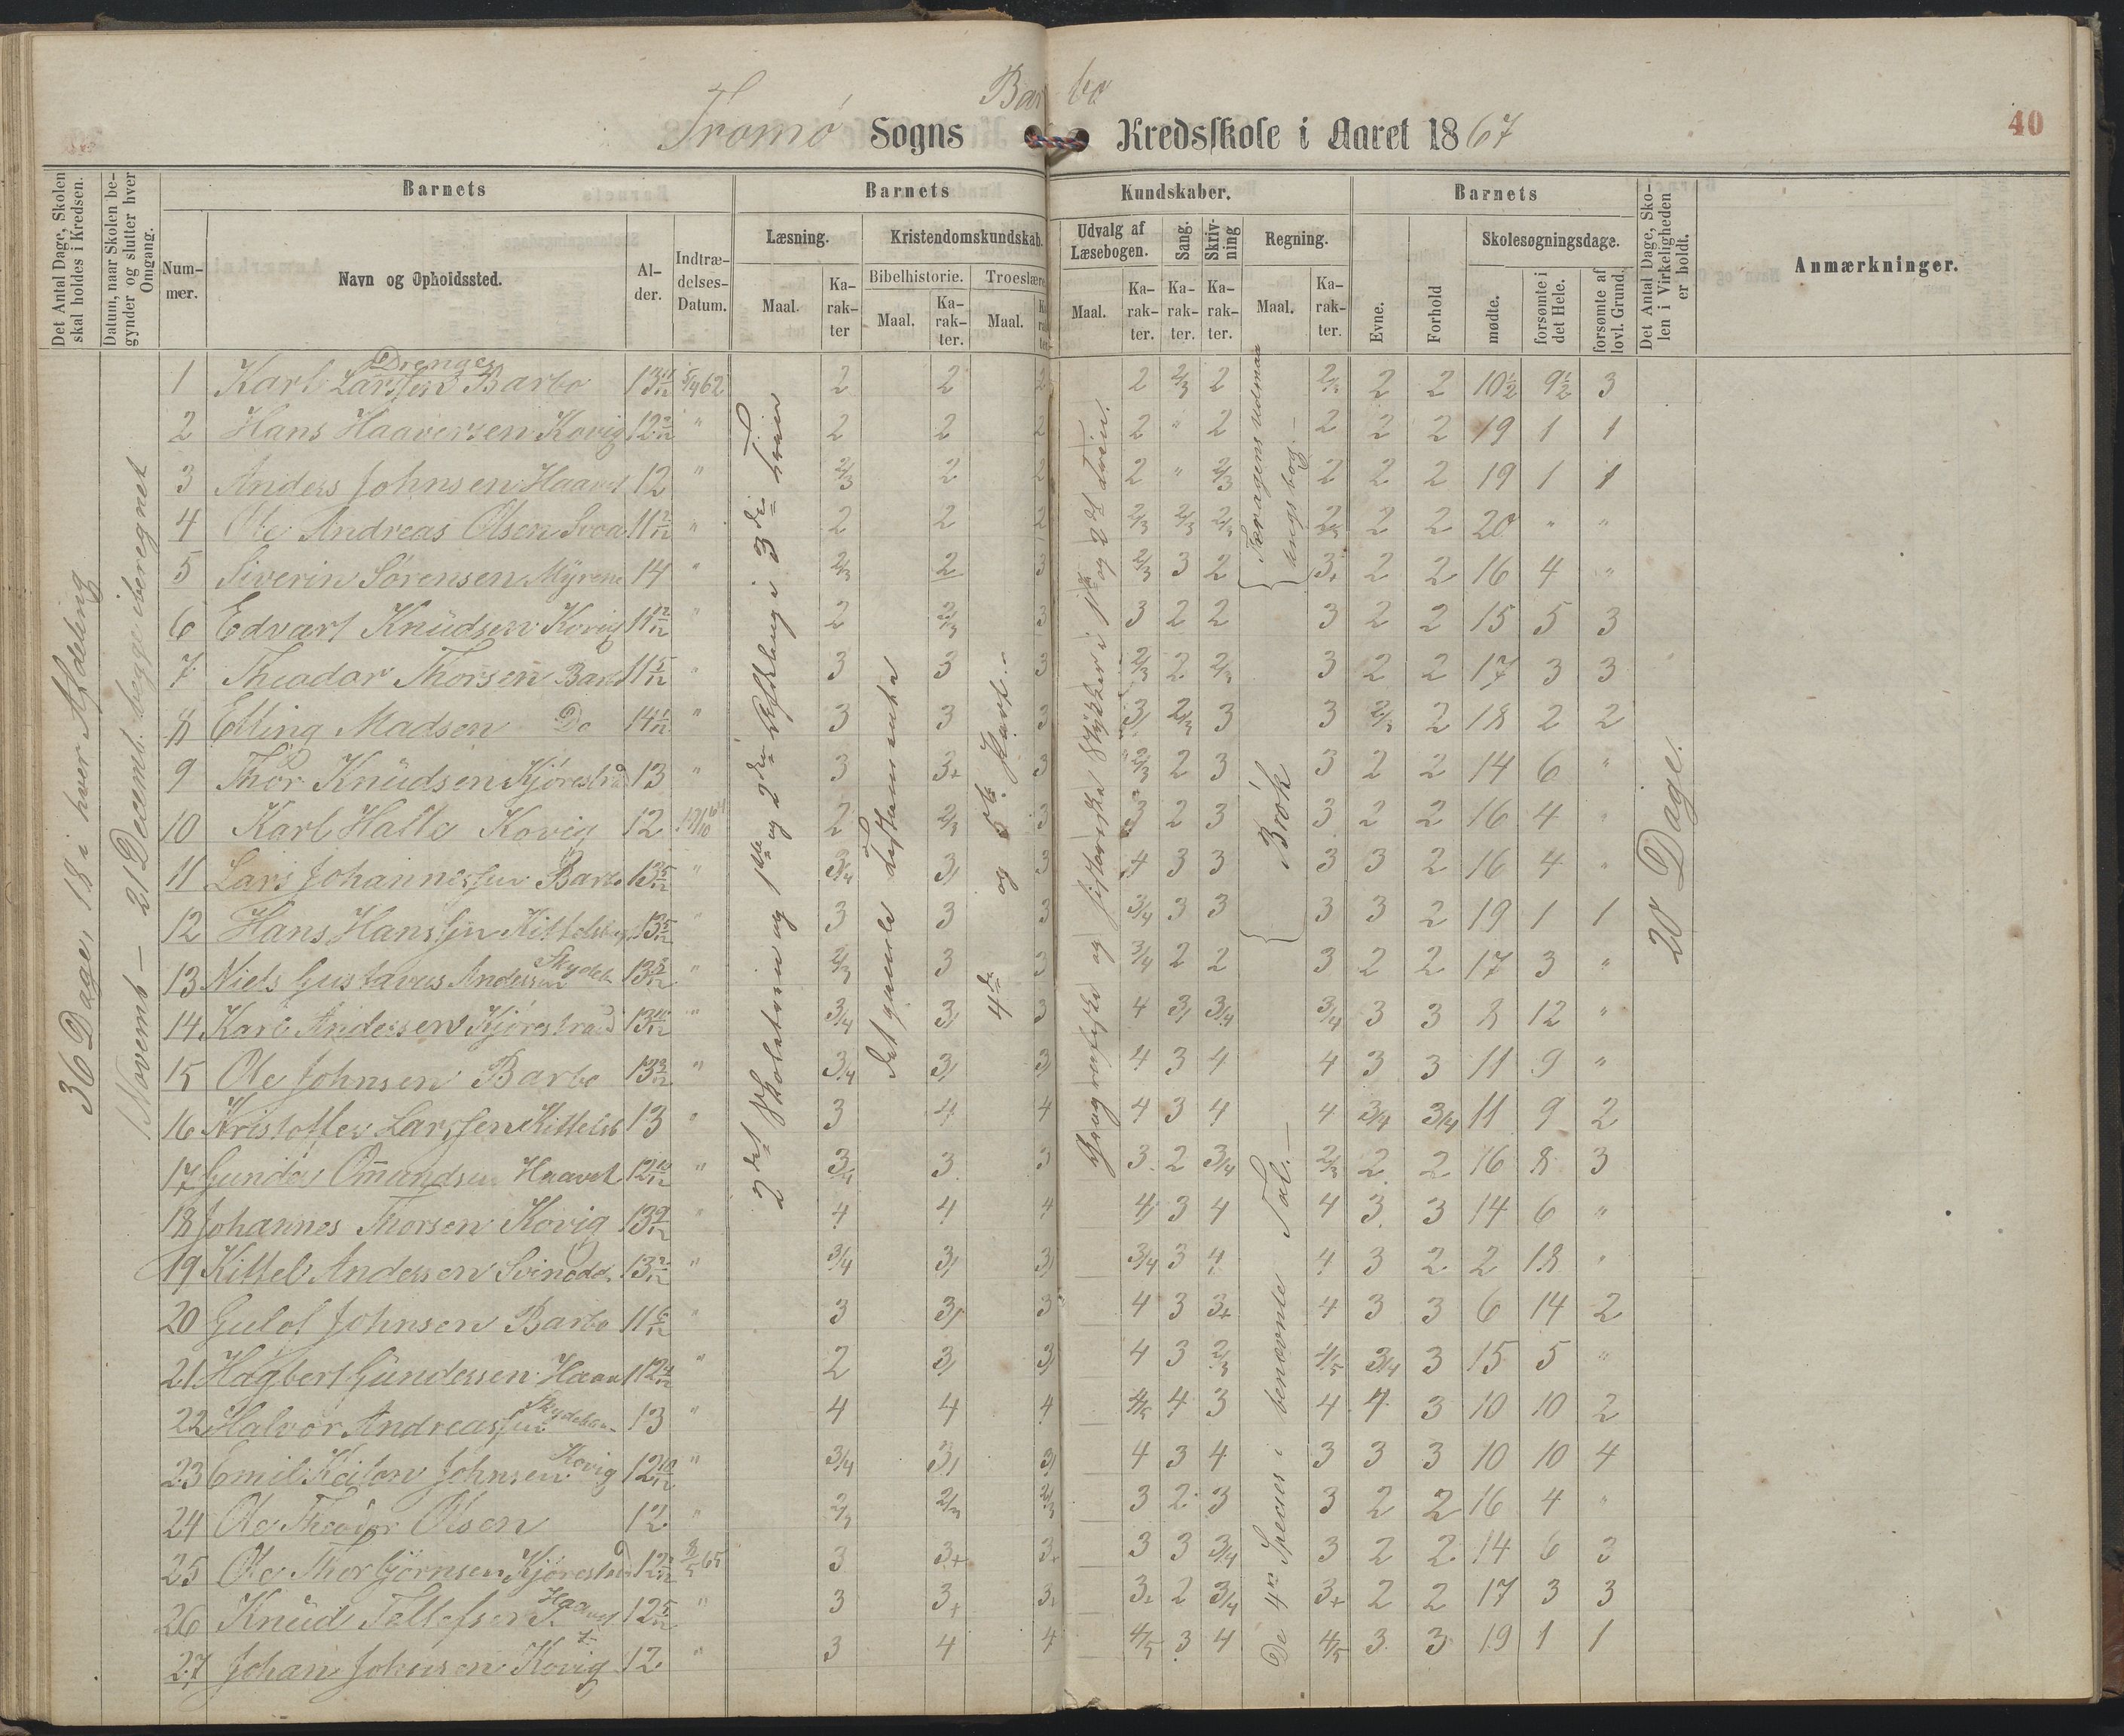 Barbo
Tromø Sogns Kredsskole i Aaret 1867
40
Det Antal Dage, Skolen skal holdes i Kredsen.
Datum, naar Skolen begynder og slutter hver Omgang.
Barnets
Nummer.
Navn og Opholdssted.
Alder.
Indtrædelses-Datum.
Barnets Kundskaber.
Læsning.
Maal.
Karakter
Kristendomskundskab.
Bibelhistorie.
Maal.
Karakter.
Troeslære
Maal.
Udvalg af Læsebogen.
Maal.
Karakter.
Sang.
Karakter.
Skrivning
Karakter.
Regning.
Maal.
Karakter.
Barnets
Evne.
Forhold
Skolesøgningsdage.
mødte.
forsømte i det Hele.
forsømte af lovl. Grund.
Det Antal Dage, Skolen i Virkeligheden er holdt.
Anmærkninger.
36 Dage, 18 i hver Afdeling
1 Novemb – 21 Decemb. begge iberegnet
2det Skoletrin og 1ste og 2den Afdeling i 3die Trin
det gamle Testamente
4de og 5te Part.
Geografiske og historiske Stykker i 1ste og 2det Trin.
Brøk
De 4re Species i benævnte Tal.
20 Dage.
Drenge
1 Karl Larssen Barbo 5/4 62 2 2 2 2 2/3 2 2/3 2 2 10½ 9½ 3
2 Hans Haaversen Kovig 12 2/12 " 2 2 2 2 " 2 2 2 2 19 1 1
3 Anders Johnsen Haavet 12 " 2/3 2 2 2 " 2/3 2 2 2 19 1 1
4 Ole Andreas Olsen 11 2/12 " 2 2 2 2/3 2/3 2/3 2 2 20 " "
5 Siverin Sørensen Myrene 14 " 2/3 2 3 2/3 3 2 3+ 2 2 16 4 "
6 Edvart Knüdsen Kovig " 2 2/3 3 3 2 2 3 2 2 15 5 3
7 Theodor Thorsen 11 5/12 " 3 3 3 2/3 2 2/3 3 2 2 17 3 3
8 Elling Madsen Do 14 1/12 " 3 3 3 3, 2/3 3 3 2/3 2 18 2 2
9 Thor Knüdsen 13 " 3 3+ 3 2/3 2 3 3 2 2 14 6 "
10 Karl Halle Kovig 12 2 2/3 3 3 2 3 3 2 2 16 4 "
11 Lars Johannessen Barbo 13 5/12 " 3/4 3, 3 4 3 3 3 3 2 16 4 "
12 Hans Hanssen 13 5/12 " 3 3 3 3/4 3 3 3 3 2 19 1 1
13 Niels Gustavus Andersen " 2/3 3 3 3/4 2 2 3 2 2 17 3 "
14 Karl Andersen Kjørestrand " 3/4 3, 3 4 3, 3/4 3/4 3 3 8 12 "
15 Ole Johnsen Barbo " 3/4 3, 3, 4 3 4 4 3 3 11 9 "
16 Kristoffer Larssen Kittelsb 13 " 3 4 4 4 3 4 4 3/4 3/4 11 9 2
17 Gunder Haavet 12 10/12 " 3/4 3 3 3 2 3/4 2/3 2 2 16 8 3
18 Johannes Thorsen Kovig 13 9/12 " 4 4 4 4, 3 4 4 3 3 14 6 "
19 Kittel Andersen 13 2/12 " 3/4 3, 3, 3/4 3 4 4 3 2 2 18 "
20 Johnsen Barbo 11 6/12 " 3 3, 3 4 3 3+ 4 3 3 6 14 2
21 Hagbert Gündersen " 2 3, 3, 4 3 2/3 4/5 3/4 3 15 5 "
22 Halvor Andreassen 13 " 4 4 4 4/5 4 3 4 4 3 10 10 2
23 Emil Johnsen Kovig 12 10/12 " 3/4 3, 3, 4 3 4 3 3 3 10 10 4
24 Ole Theodor Olsen 12 " 2/3 2/3 2/3 3 2 3 3 2 2 16 4 "
25 Ole Thorbjörnsen 3 3+ 3+ 3 3 3/4 3 2 2 14 6 3
26 Knüd Tellefsen 12 5/12 " 3 3+ 3+ 3+ 2 3/4 3+ 2 2 17 3 3
27 Johan Johnsen Kovig 12 " 3 4 4 4/5 3 4 4/5 3 3 19 1 1